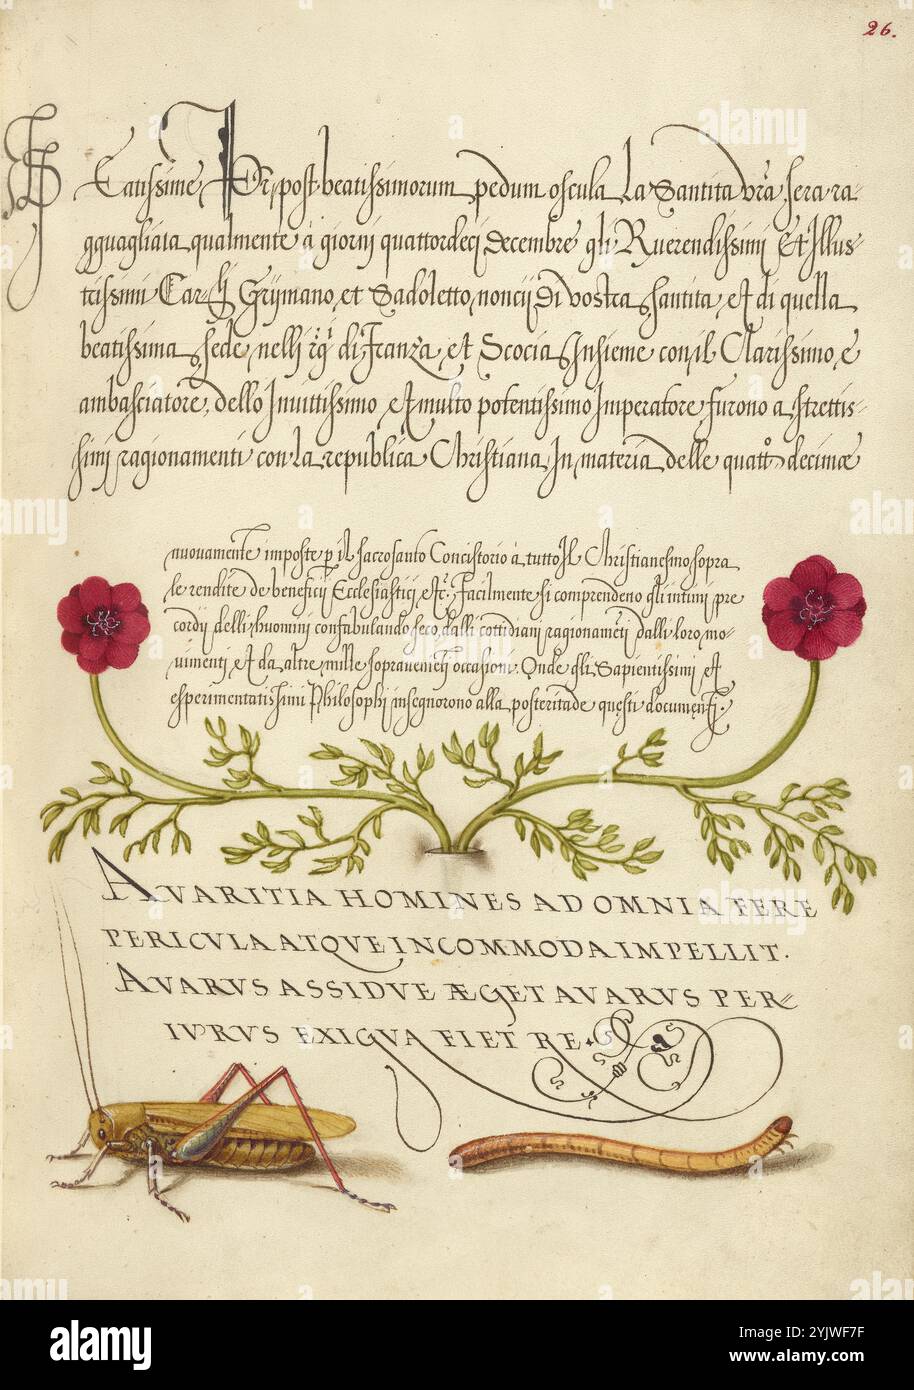 26.
Beatissime Pr, post beatissimorum pedum oscula La Santita vra sera ra-
gguagliata qualmente à giorni quattordeci Decembre gli Ruerendissimi Et Illus-
trissimi Car.li Grijmano, et Sadoletto, noncij Di vostra santita et di quella
beatissima sede nelli di Franza et Scocia Insieme con il Clarissimo, e
ambasciatore, dello Inuittissimo et multo potentissimo Imperatore furono a strettis-
simi ragionamenti con la republica Christiana In materia delle quatt.o decimæ
nuouamente imposte p il sacrosanto Concistorio à tutto Il Christianesmo sopra
le rendite de beneficij Ecclesiastici, etc. Facilmente si comprendeno gli intimi pre
cordij delli huomini confabulando seco dalli cottidiani ragionamēti dalli loro mo-
uimenti et da altre mille soprauenēti occasioni. Onde gli Sapientissimi et
esperimentatissimi Philosophi insegnorono alla posteritade questi documenti.
AVARITIA HOMINES AD OMNIA FERE
PERICVLA ATQVE INCOMMODA IMPELLIT.
AVARVS ASSIDVE ÆGET AVARVS PER-
IVRVS EXIGVA FIET RE.
alamy
Image ID: 2YJWF7F
www.alamy.com